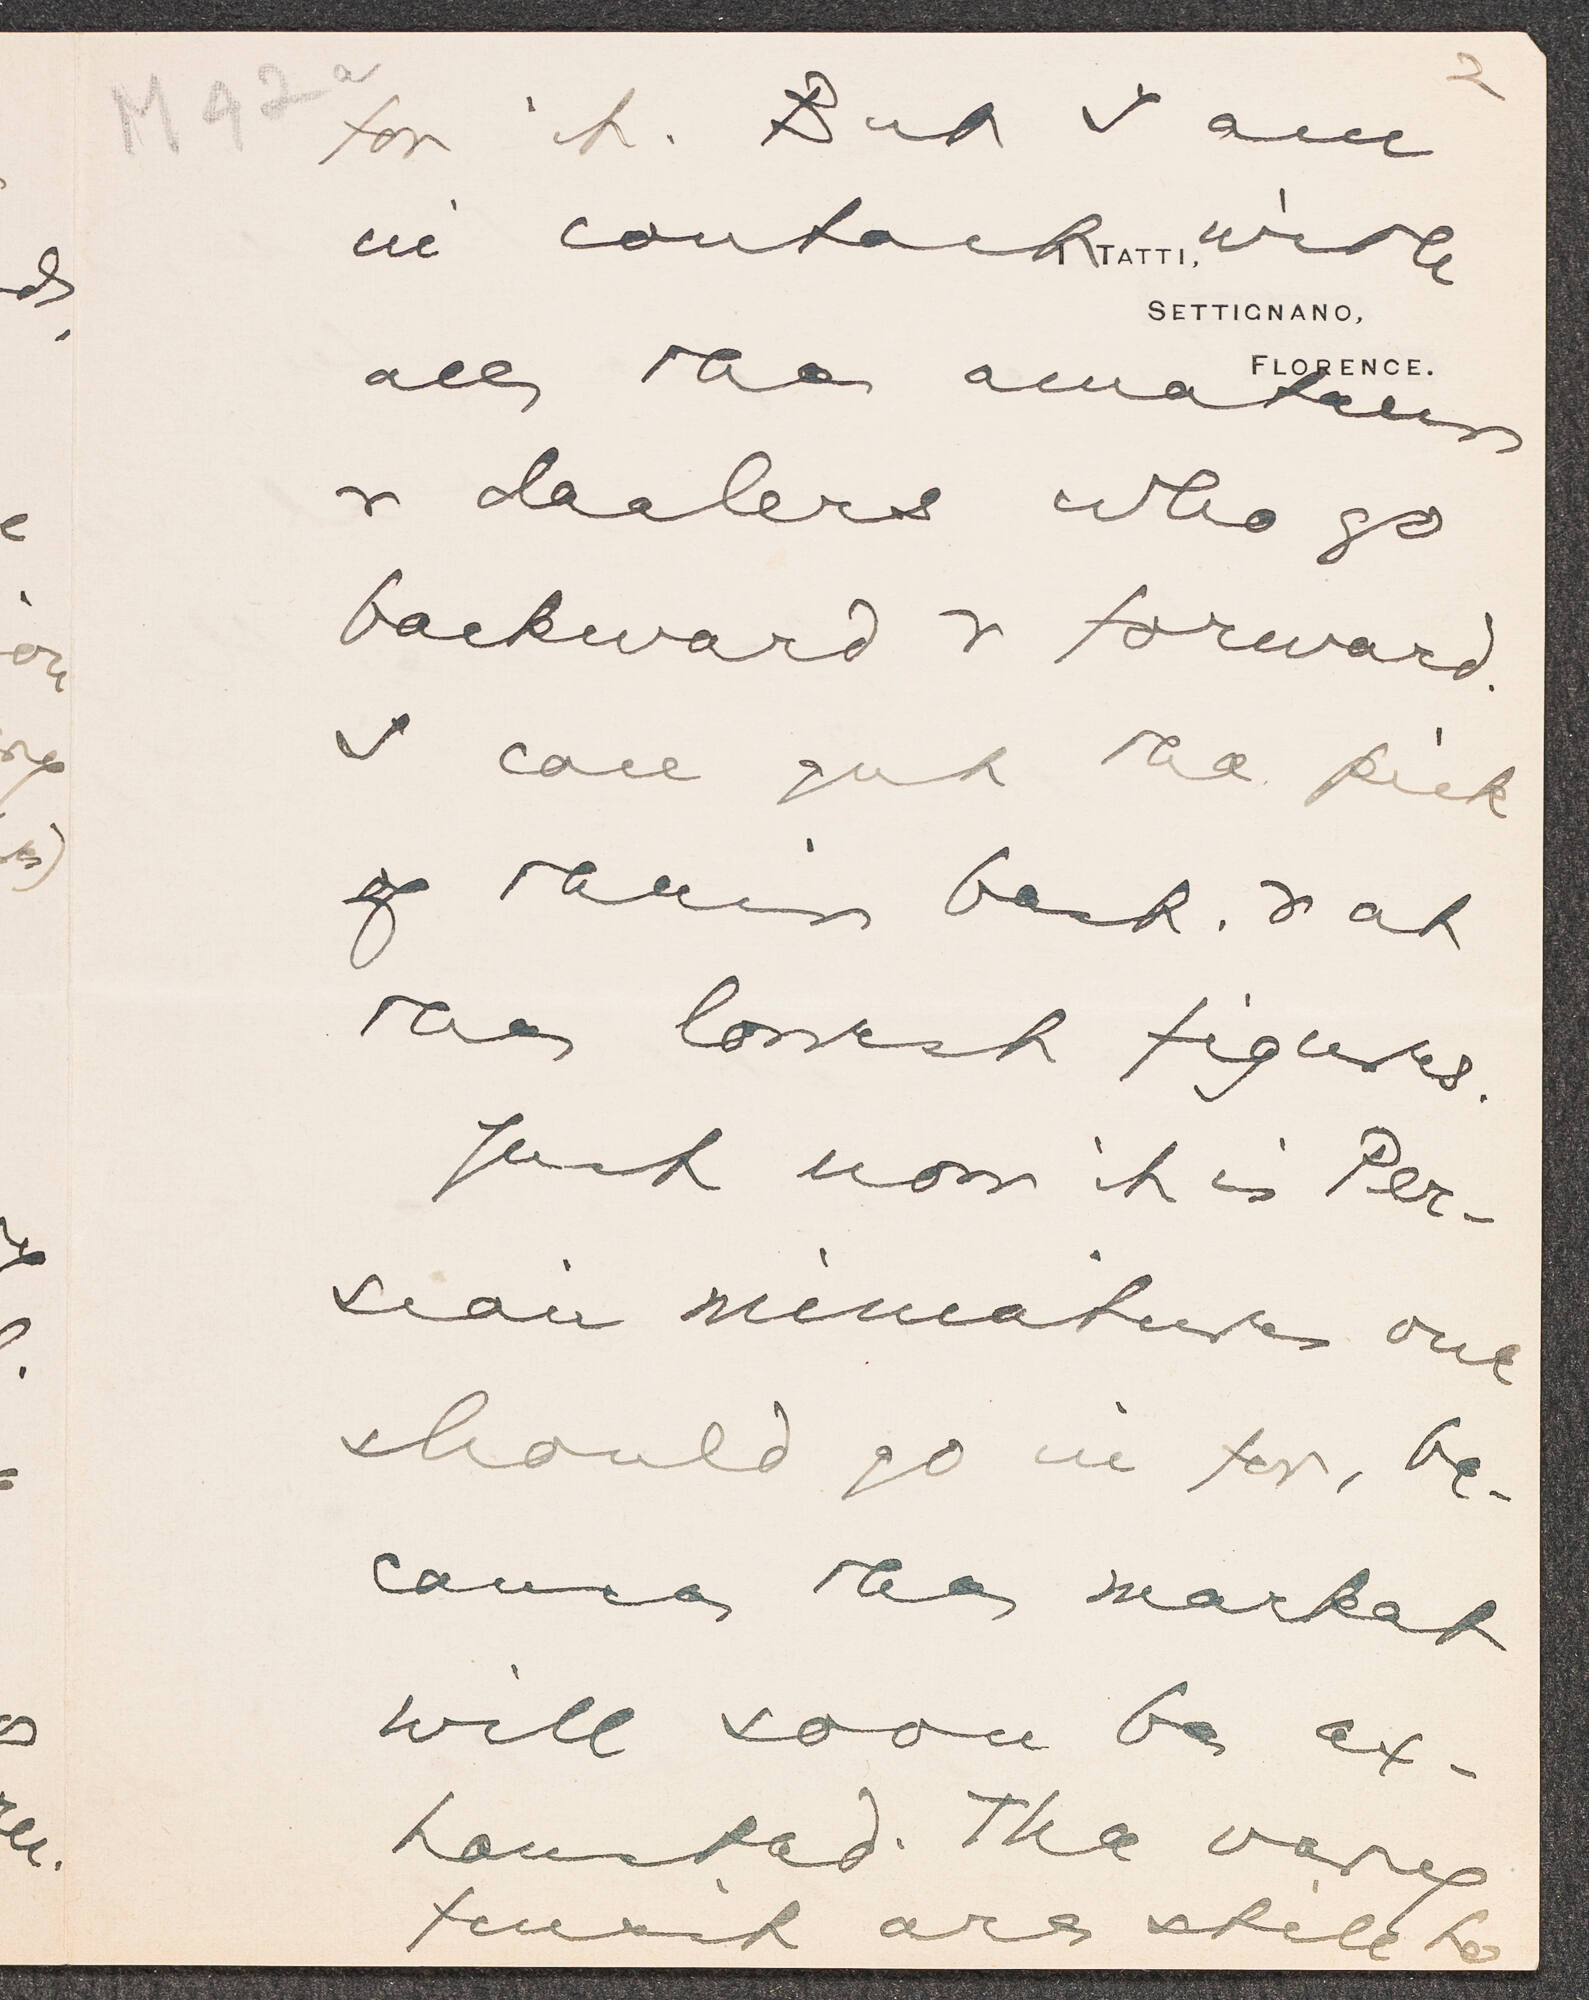 M 42a
2
for it. But I am
in contact with
I TATTI,
SETTIGNANO,
FLORENCE.
all the amateurs
& dealers who go
backward & forward.
I can get the pick
of their back. & at
the lowest figures.
Just now it is Per-
sian miniatures one
should go in for, be-
cause the market
will soon be ex-
hausted. The very
finest are still to